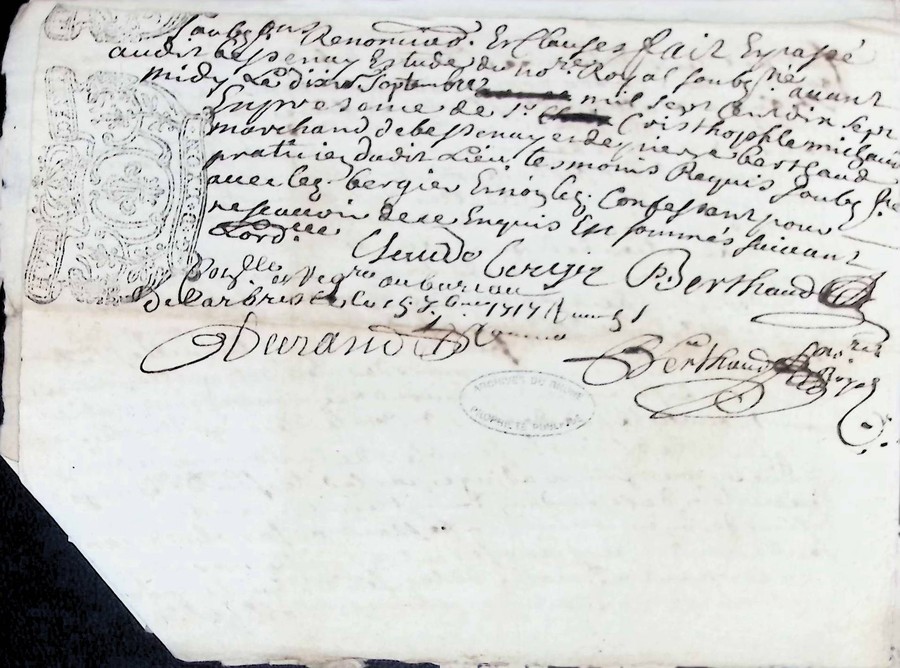 soubz^nns Renonciaõ. Et Clauses fait Et passé
audit bessenay Estude du no^re Royal soubz^né avant
midy Le dix^e Septembre mil sept Cent dix sept
En presence de s^r Cristhophle michaud
marchand de bessenay et de pierre berthaud
praticien dudit Lieu tesmoins Requis soubz^nés
avec led. bergier Et non led. Confessant pour
ne scavoir de ce Enquis Et sommés suivant
Lord^ce
Claude bergier PBerthaud
Con^lle et Regré au bureau
De Larbresle le 15 7^bre 1717
Durand
Berthaud no^re Royal
ARCHIVES DU RHÔNE
PROPRIÉTÉ PUBLIQUE